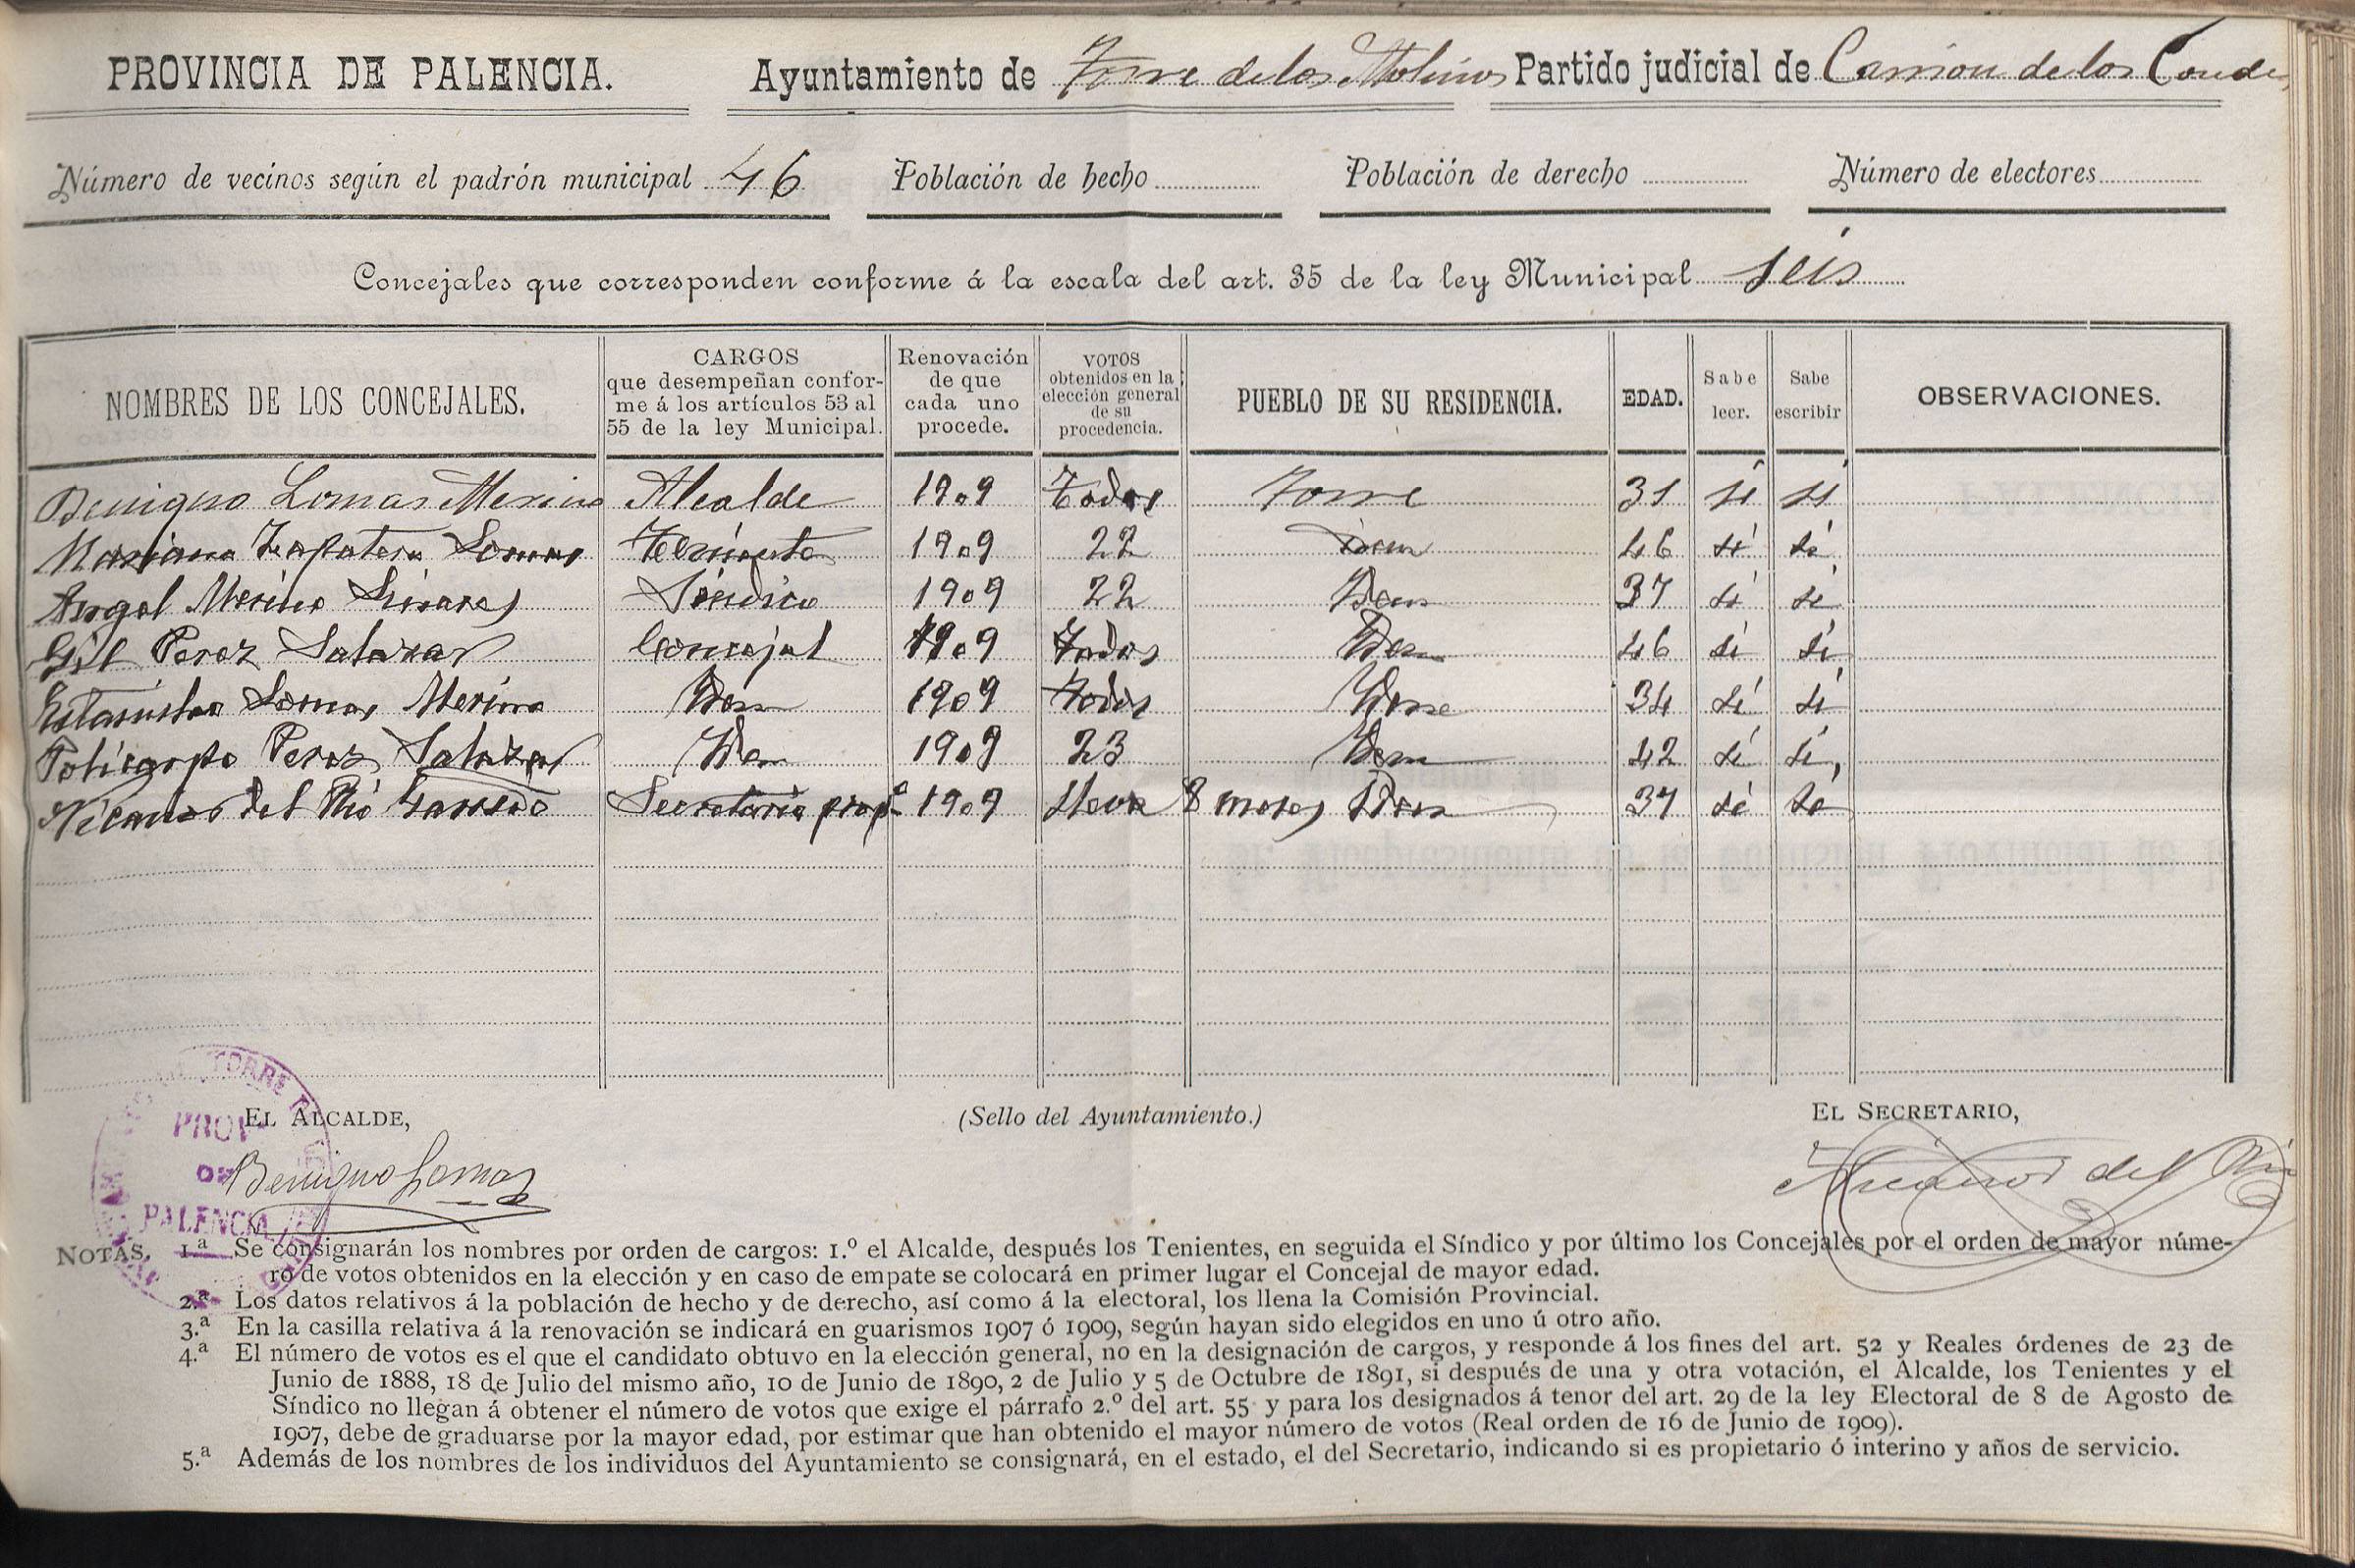 PROVINCIA DE PALENCIA. Ayuntamiento de Torre de los Molinos Partido judicial de Carrion de los Condes
Número de vecinos según el padrón municipal 46 Población de hecho Población de derecho Número de electores
Concejales que corresponden conforme á la escala del art. 35 de la ley Municipal seis
NOMBRES DE LOS CONCEJALES. CARGOS que desempeñan conforme á los artículos 53 al 55 de la ley Municipal. Renovación de que cada uno procede. VOTOS obtenidos en la elección general de su procedencia. PUEBLO DE SU RESIDENCIA. EDAD. Sabe leer. Sabe escribir OBSERVACIONES.
Benigno Lomas Merino Alcalde 1909 Todos Torre 31 sí sí
Mariano Zapatero Lomas Teniente 1909 22 Idem 46 sí sí
Angel Merino Linares Síndico 1909 22 Idem 37 sí sí
Gil Perez Salazar Concejal 1909 Todos Idem 46 sí sí
Estanislao Lomas Merino Idem 1909 Todos Idem 34 sí sí
Policarpo Perez Salazar Idem 1909 23 Idem 42 sí sí,
Nicanor del Rio Garrido Secretario propº 1909 lleva 8 meses Idem 37 sí sí
EL ALCALDE, (Sello del Ayuntamiento.) EL SECRETARIO,
TORRE
PROVª
DE
PALENCIA
Benigno Lomas Nicanor del Rio
NOTAS. 1.ª Se consignarán los nombres por orden de cargos: 1.º el Alcalde, después los Tenientes, en seguida el Síndico y por último los Concejales por el orden de mayor núme-
ro de votos obtenidos en la elección y en caso de empate se colocará en primer lugar el Concejal de mayor edad.
2.ª Los datos relativos á la población de hecho y de derecho, así como á la electoral, los llena la Comisión Provincial.
3.ª En la casilla relativa á la renovación se indicará en guarismos 1907 ó 1909, según hayan sido elegidos en uno ú otro año.
4.ª El número de votos es el que el candidato obtuvo en la elección general, no en la designación de cargos, y responde á los fines del art. 52 y Reales órdenes de 23 de
Junio de 1888, 18 de Julio del mismo año, 10 de Junio de 1890, 2 de Julio y 5 de Octubre de 1891, si después de una y otra votación, el Alcalde, los Tenientes y el
Síndico no llegan á obtener el número de votos que exige el párrafo 2.º del art. 55 y para los designados á tenor del art. 29 de la ley Electoral de 8 de Agosto de
1907, debe de graduarse por la mayor edad, por estimar que han obtenido el mayor número de votos (Real orden de 16 de Junio de 1909).
5.ª Además de los nombres de los individuos del Ayuntamiento se consignará, en el estado, el del Secretario, indicando si es propietario ó interino y años de servicio.